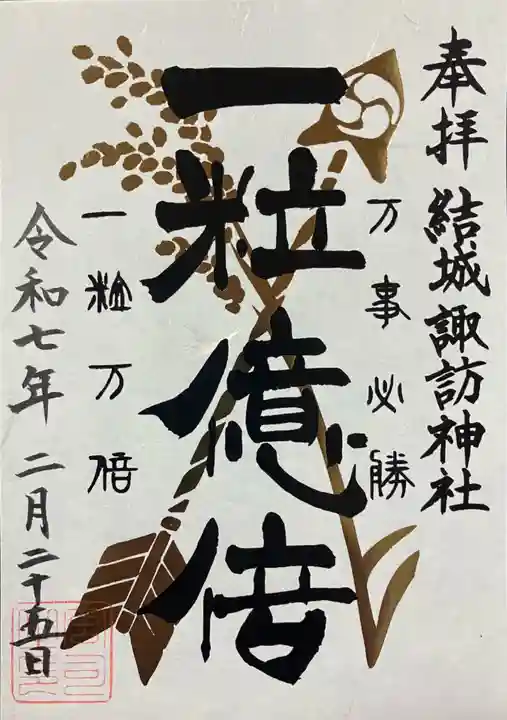 奉拝 結城諏訪神社
万事必勝
一粒億倍
一粒万倍
令和七年 二月二十五日